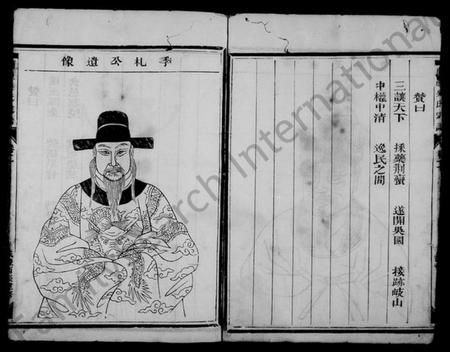 季札公遺像
贊曰
三讓天下　採藥荊蠻　遂開吳國　接跡岐山
中權中清　逸民之間
rch International